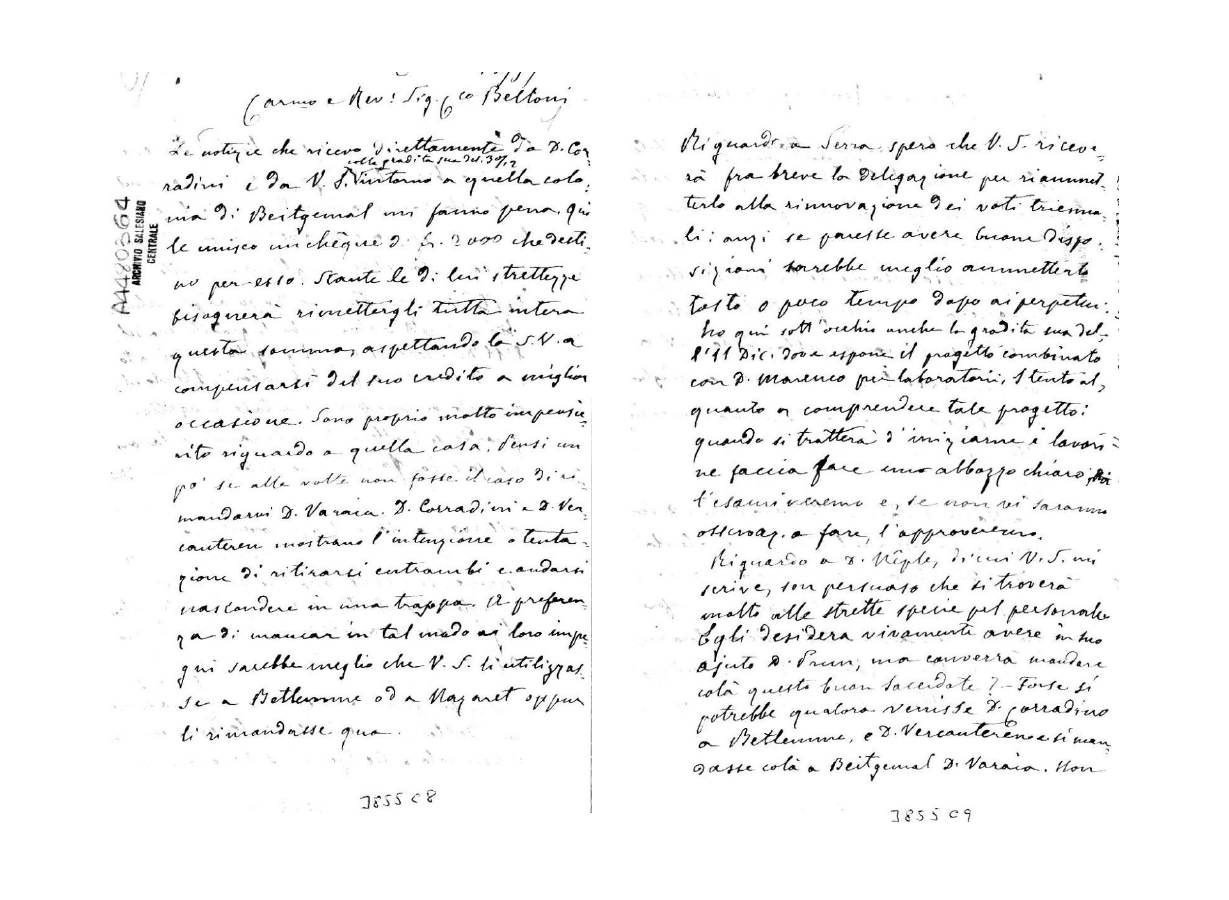 Carmo e Rev! Sig. Co Belloni
Le notizie che ricevo direttamente da D. Cor-
colla gradita sua del 30/12
radini e da V. S. intorno a quella colo-
nia di Beitgemal mi fanno pena. Qui
le unisco un chèque di fr. 2000 che desti-
no per esso. Stante le di lui strettezze
bisognerà rimettergli tutta intera
questa somma, aspettando la S.V. a
compensarsi del suo credito a miglior
occasione. Sono proprio molto impensie-
rito riguardo a quella casa. Pensi un
po' se alle volte non fosse il caso di ri-
mandarvi D. Varaia. D. Corradini e D. Ver-
cauteren mostrano l'intenzione o tenta-
zione di ritirarsi entrambi e andarsi
nascondere in una trappa. A preferen-
za di mancar in tal modo ai loro impe-
gni sarebbe meglio che V. S. li utilizzas-
se a Betlemme od a Nazaret oppur
li rimandasse qua.
J855 C8
A4480364
ARCHIVIO SALESIANO
CENTRALE
Riguardo a Serra spero che V. S. riceve-
rà fra breve la Delegazione per riammet-
terlo alla rinnovazione dei voti trienna-
li: anzi se paresse avere buone dispo-
sizioni sarebbe meglio ammetterlo
tosto o poco tempo dopo ai perpetui.
Ho qui sott'occhio anche la gradita sua del-
l'11 Dic. dove espone il progetto combinato
con D. Marenco pei laboratorii. Stento al-
quanto a comprendere tale progetto:
quando si tratterà d'iniziarne i lavori
ne faccia fare uno abbozzo chiaro, Noi
l'esamineremo e, se non vi saranno
osservaz. a fare, l'approveremo.
Riguardo a D. di cui V. S. mi
scrive, son persuaso che si troverà
molto alle strette specie pel personale
Egli desidera vivamente avere in suo
ajuto D. Prun, ma converrà mandare
colà questo buon Sacerdote? - Forse si
potrebbe qualora venisse D. Corradino
a Betlemme, e D. Vercauteren e si man-
dasse colà a Beitgemal D. Varaia. Non
J855 C9